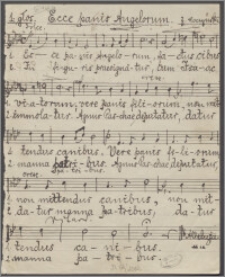 2 głos. Ecce panis Angelorum.
1. Ec - ce panis Angelo - rum, fa - ctus cibus
2. In figu - ris praesigna - tur, cum Isaac
1. vi - a - to - rum, vere panis fili - orum, non mit
2. immola - tur, Agnus Pas - chae deputatur, datur
1. tendus canibus, Vere panis fi - li - orum
2. manna patri - bus. Agnus Pas - chae deputatur,
1. non mittendus canibus, non mit -
2. da - tur manna patribus, datur
1. tendus ca - ni - bus.
2. manna pa - tri - bus.